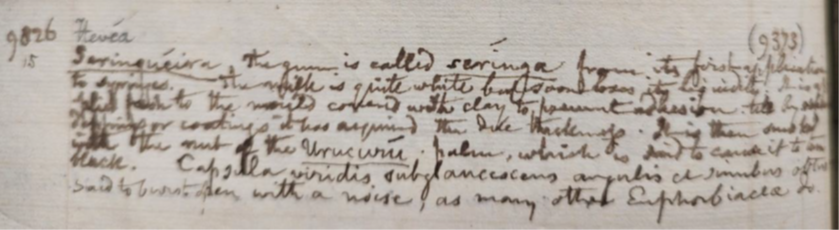 9826 Hevea (9373)
15 Seringuéira, The gum is called séringa from its first application
to syringes. The milk is quite white but soon loses its liquidity. It is
to the mould covered with clay to prevent adhesion till by
or coatings it has acquired the due thickness. It is then smoked
with the nut of the Urucurú palm, which is said to cause it to turn
black. Capsula viridis subglaucescens angulis et
said to burst open with a noise, as many other Euphorbiaceæ do.